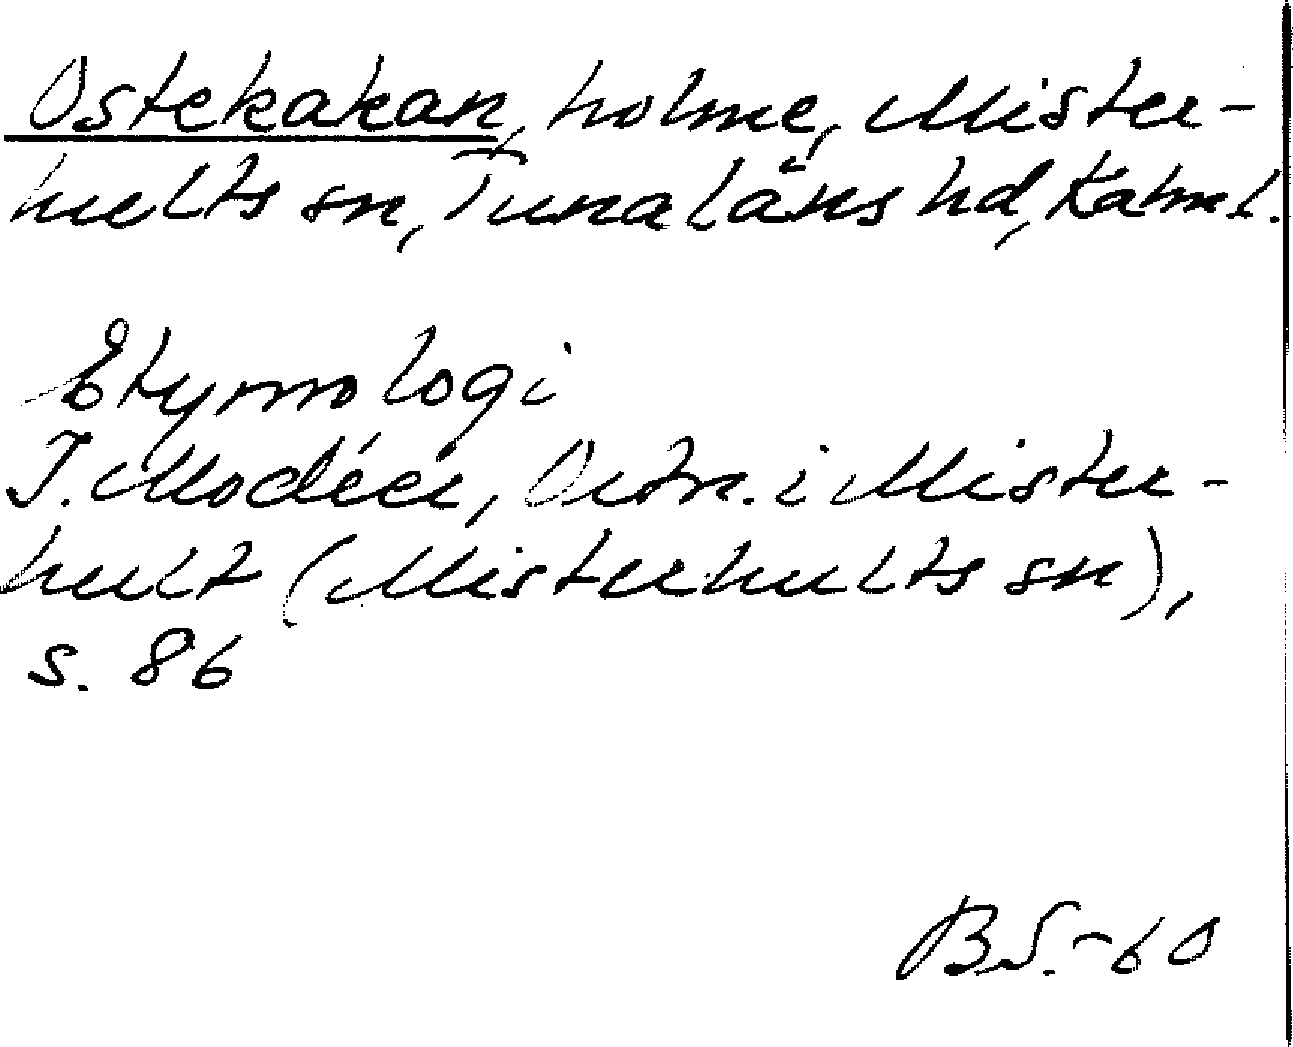 Ostekakan, holme, Mister-
hults sn, Tunaläns hd, Kalm l.
Etymologi
I. Modéer, Ortn. i Mister-
hult (Misterhults sn),
s. 86
B.S.-60